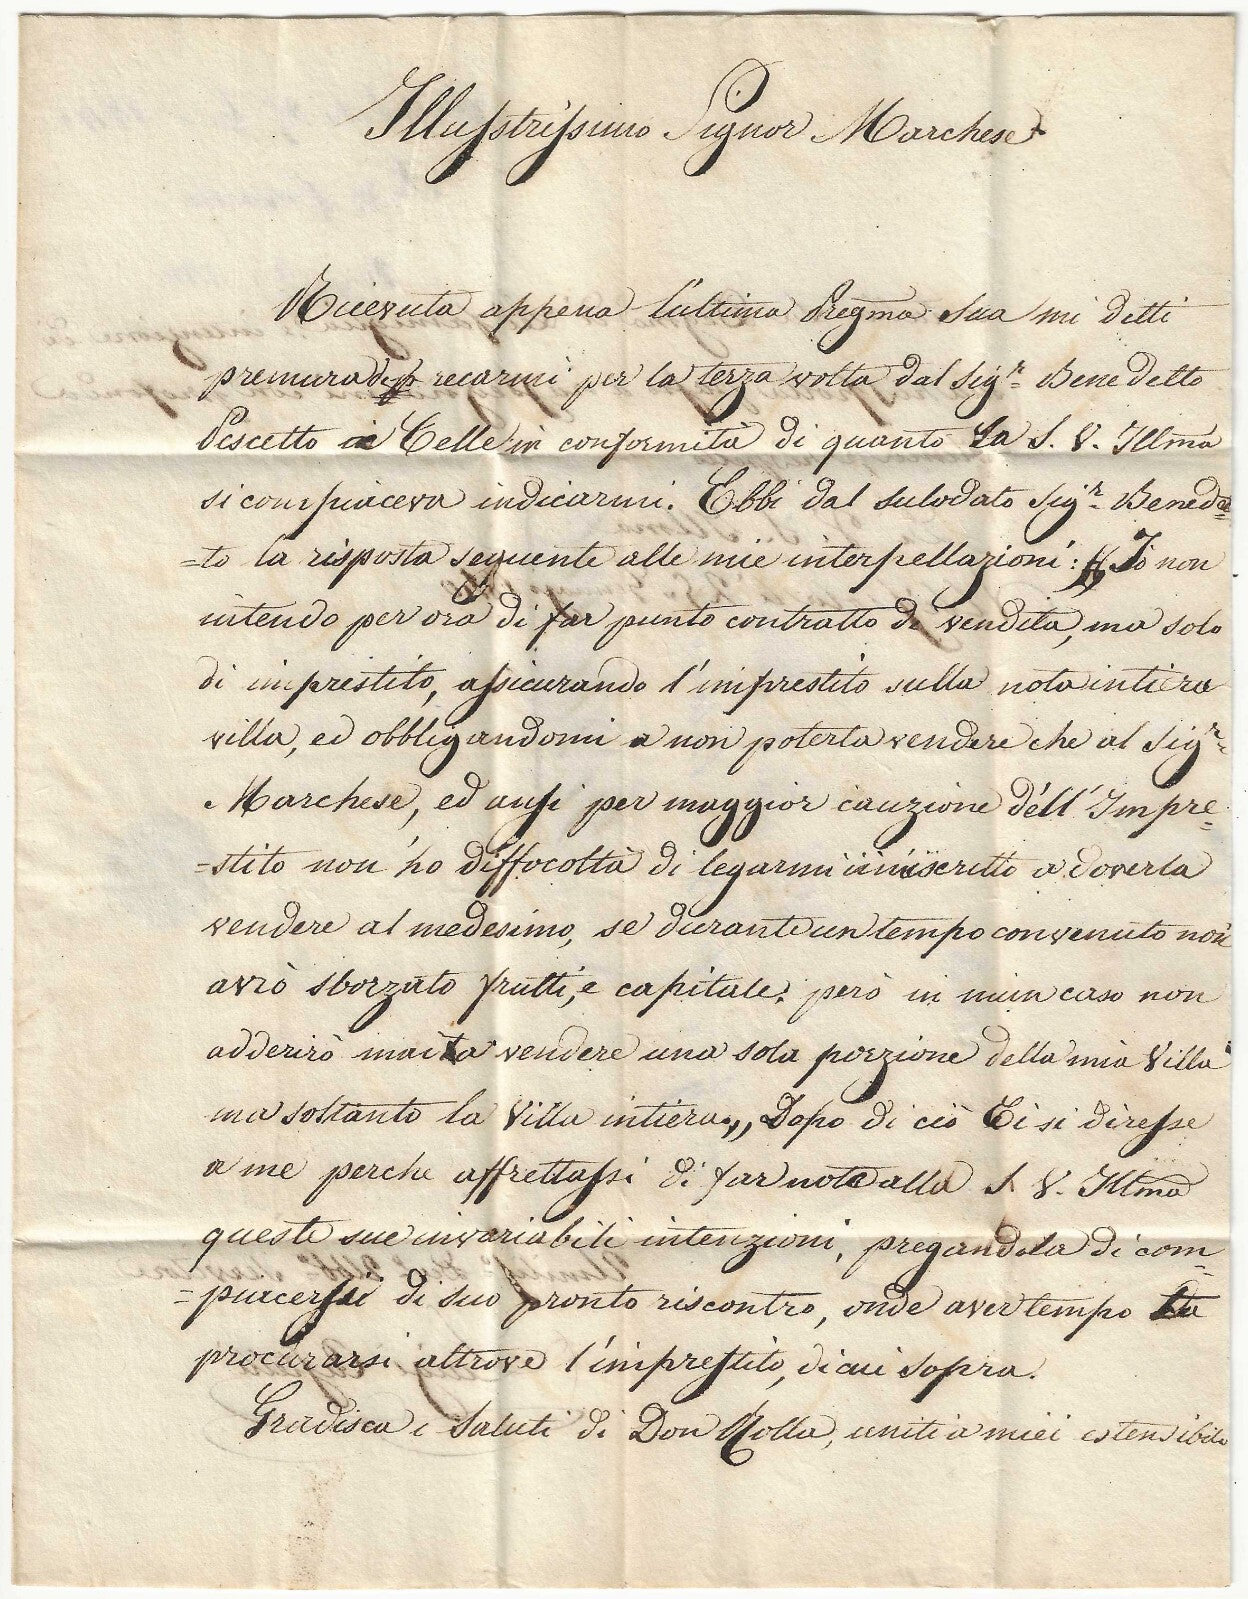 Illustrissimo Signor Marchese
Ricevuta appena l'ultima Pregma sua mi detti
premura recarmi per la terza volta dal Sigr. Benedetto
Pescetto a Celle in conformità di quanto La S. V. Illma
si compiaceva indicarmi. Ebbi dal sulodato Sigr. Benedet=
=to la risposta seguente alle mie interpellazioni: „Io non
intendo per ora di far punto contratto di vendita, ma solo
di imprestito, assicurando l'imprestito sulla nota intiera
villa, ed obbligandomi a non poterla vendere che al Sigr.
Marchese, ed ansi per maggior cauzione dell'Impre=
=stito non ho diffocoltà di legarmi in iscritto a doverla
vendere al medesimo, se durante un tempo convenuto non
avrò sborzato frutti, e capitale. però in niun caso non
adderirò mai a vendere una sola porzione della mia Villa
ma soltanto la Villa intiera„ Dopo di ciò Ei si diresse
a me perche affrettassi di far note alla S. V. Illma
queste sue invariabili intenzioni, pregandola di com=
=piacersi di suo pronto riscontro, onde aver tempo
procurarsi altrove l'imprestito, di cui sopra.
Gradisca i saluti di Don Rolla, uniti a miei estensibili